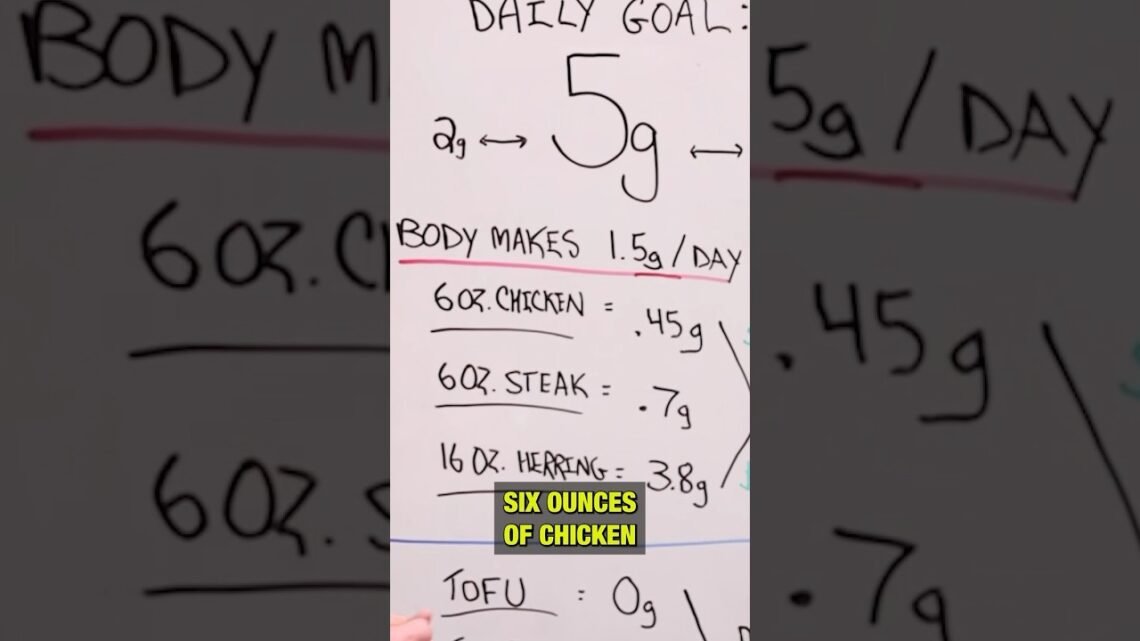 DAILY GOAL:
2g ↔ 5g ↔
BODY MAKES 1.5g / DAY
6 OZ. CHICKEN = .45g
6 OZ. STEAK = .7g
16 OZ. HERRING = 3.8g
SIX OUNCES
OF CHICKEN
TOFU = 0g